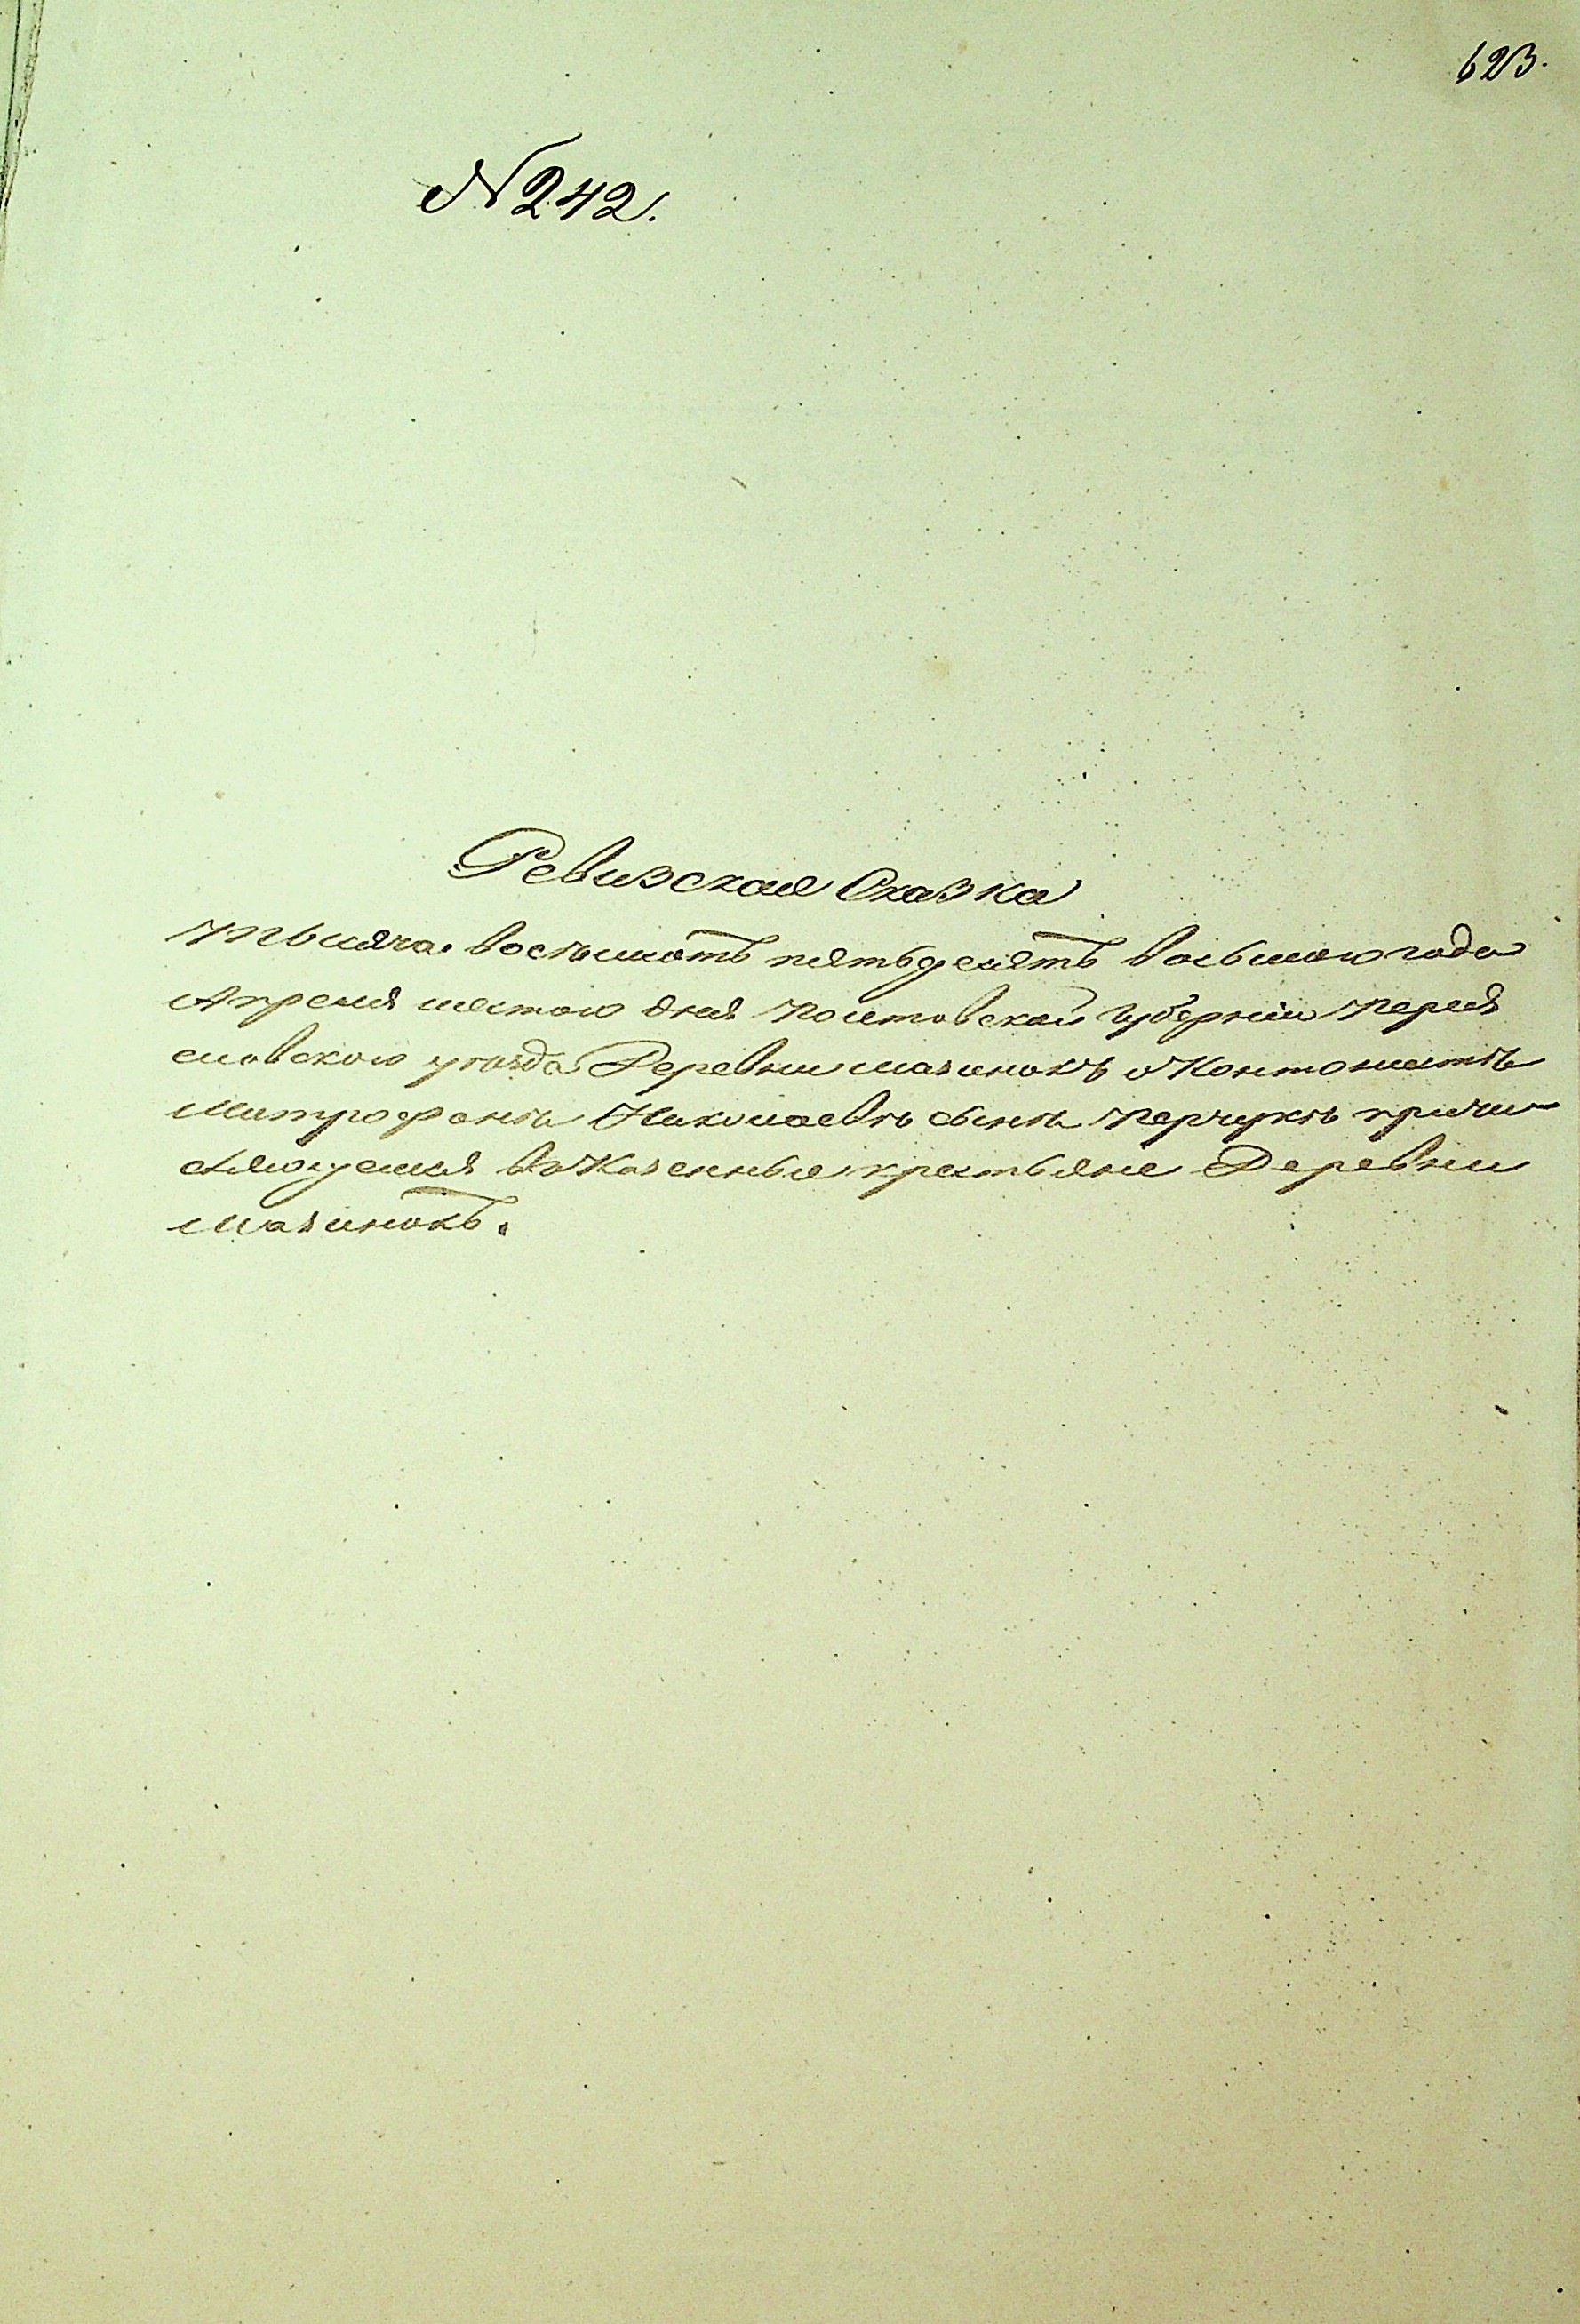 623.
№ 242.
Ревизская Сказка
Тысяча восѣмьсотъ пятьдесятъ восьмого года
Апреля шестого дня Полтовской Губерніи Перея
словского уѣзда Деревни Мазинокъ о Контонистѣ
Митрофанѣ Николаевѣ сынѣ Перчукѣ причи
сляющемся въ Казенные крестьяне Деревни
Мазинокъ.